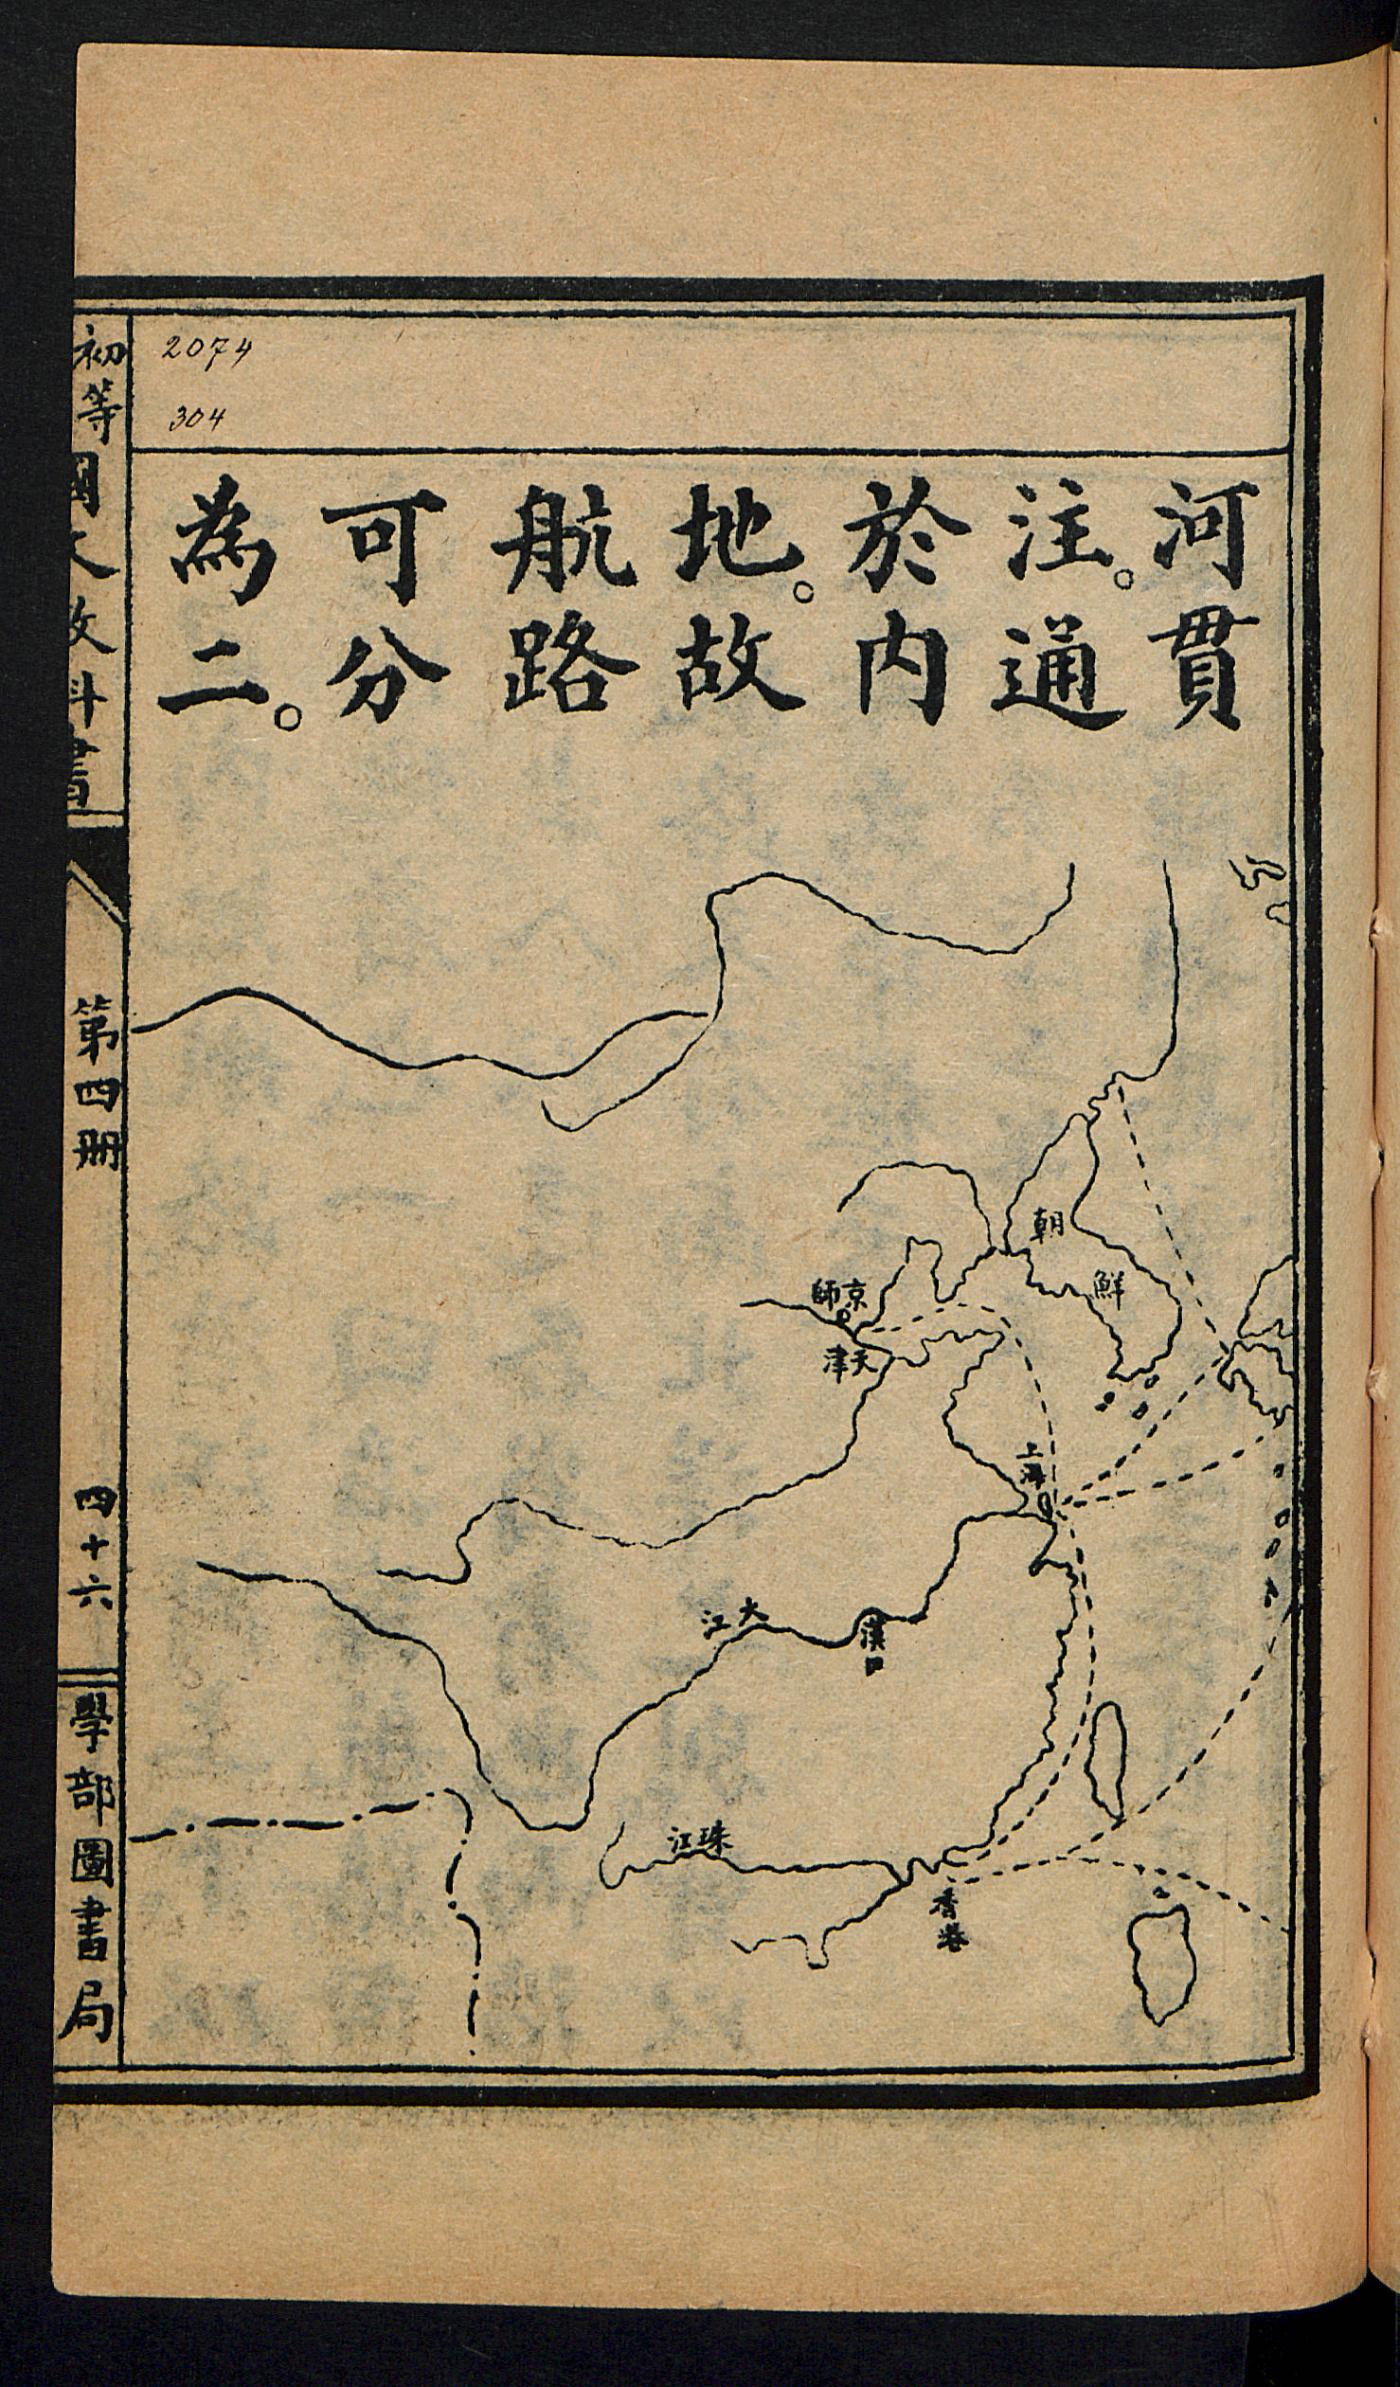 河貫
注。通
於内
地。故
航路
可分
為二。
2074
304
朝鮮
京師
天津
上海
大江
漢口
珠江
香港
初等國文教科書
第四册
四十六
學部圖書局